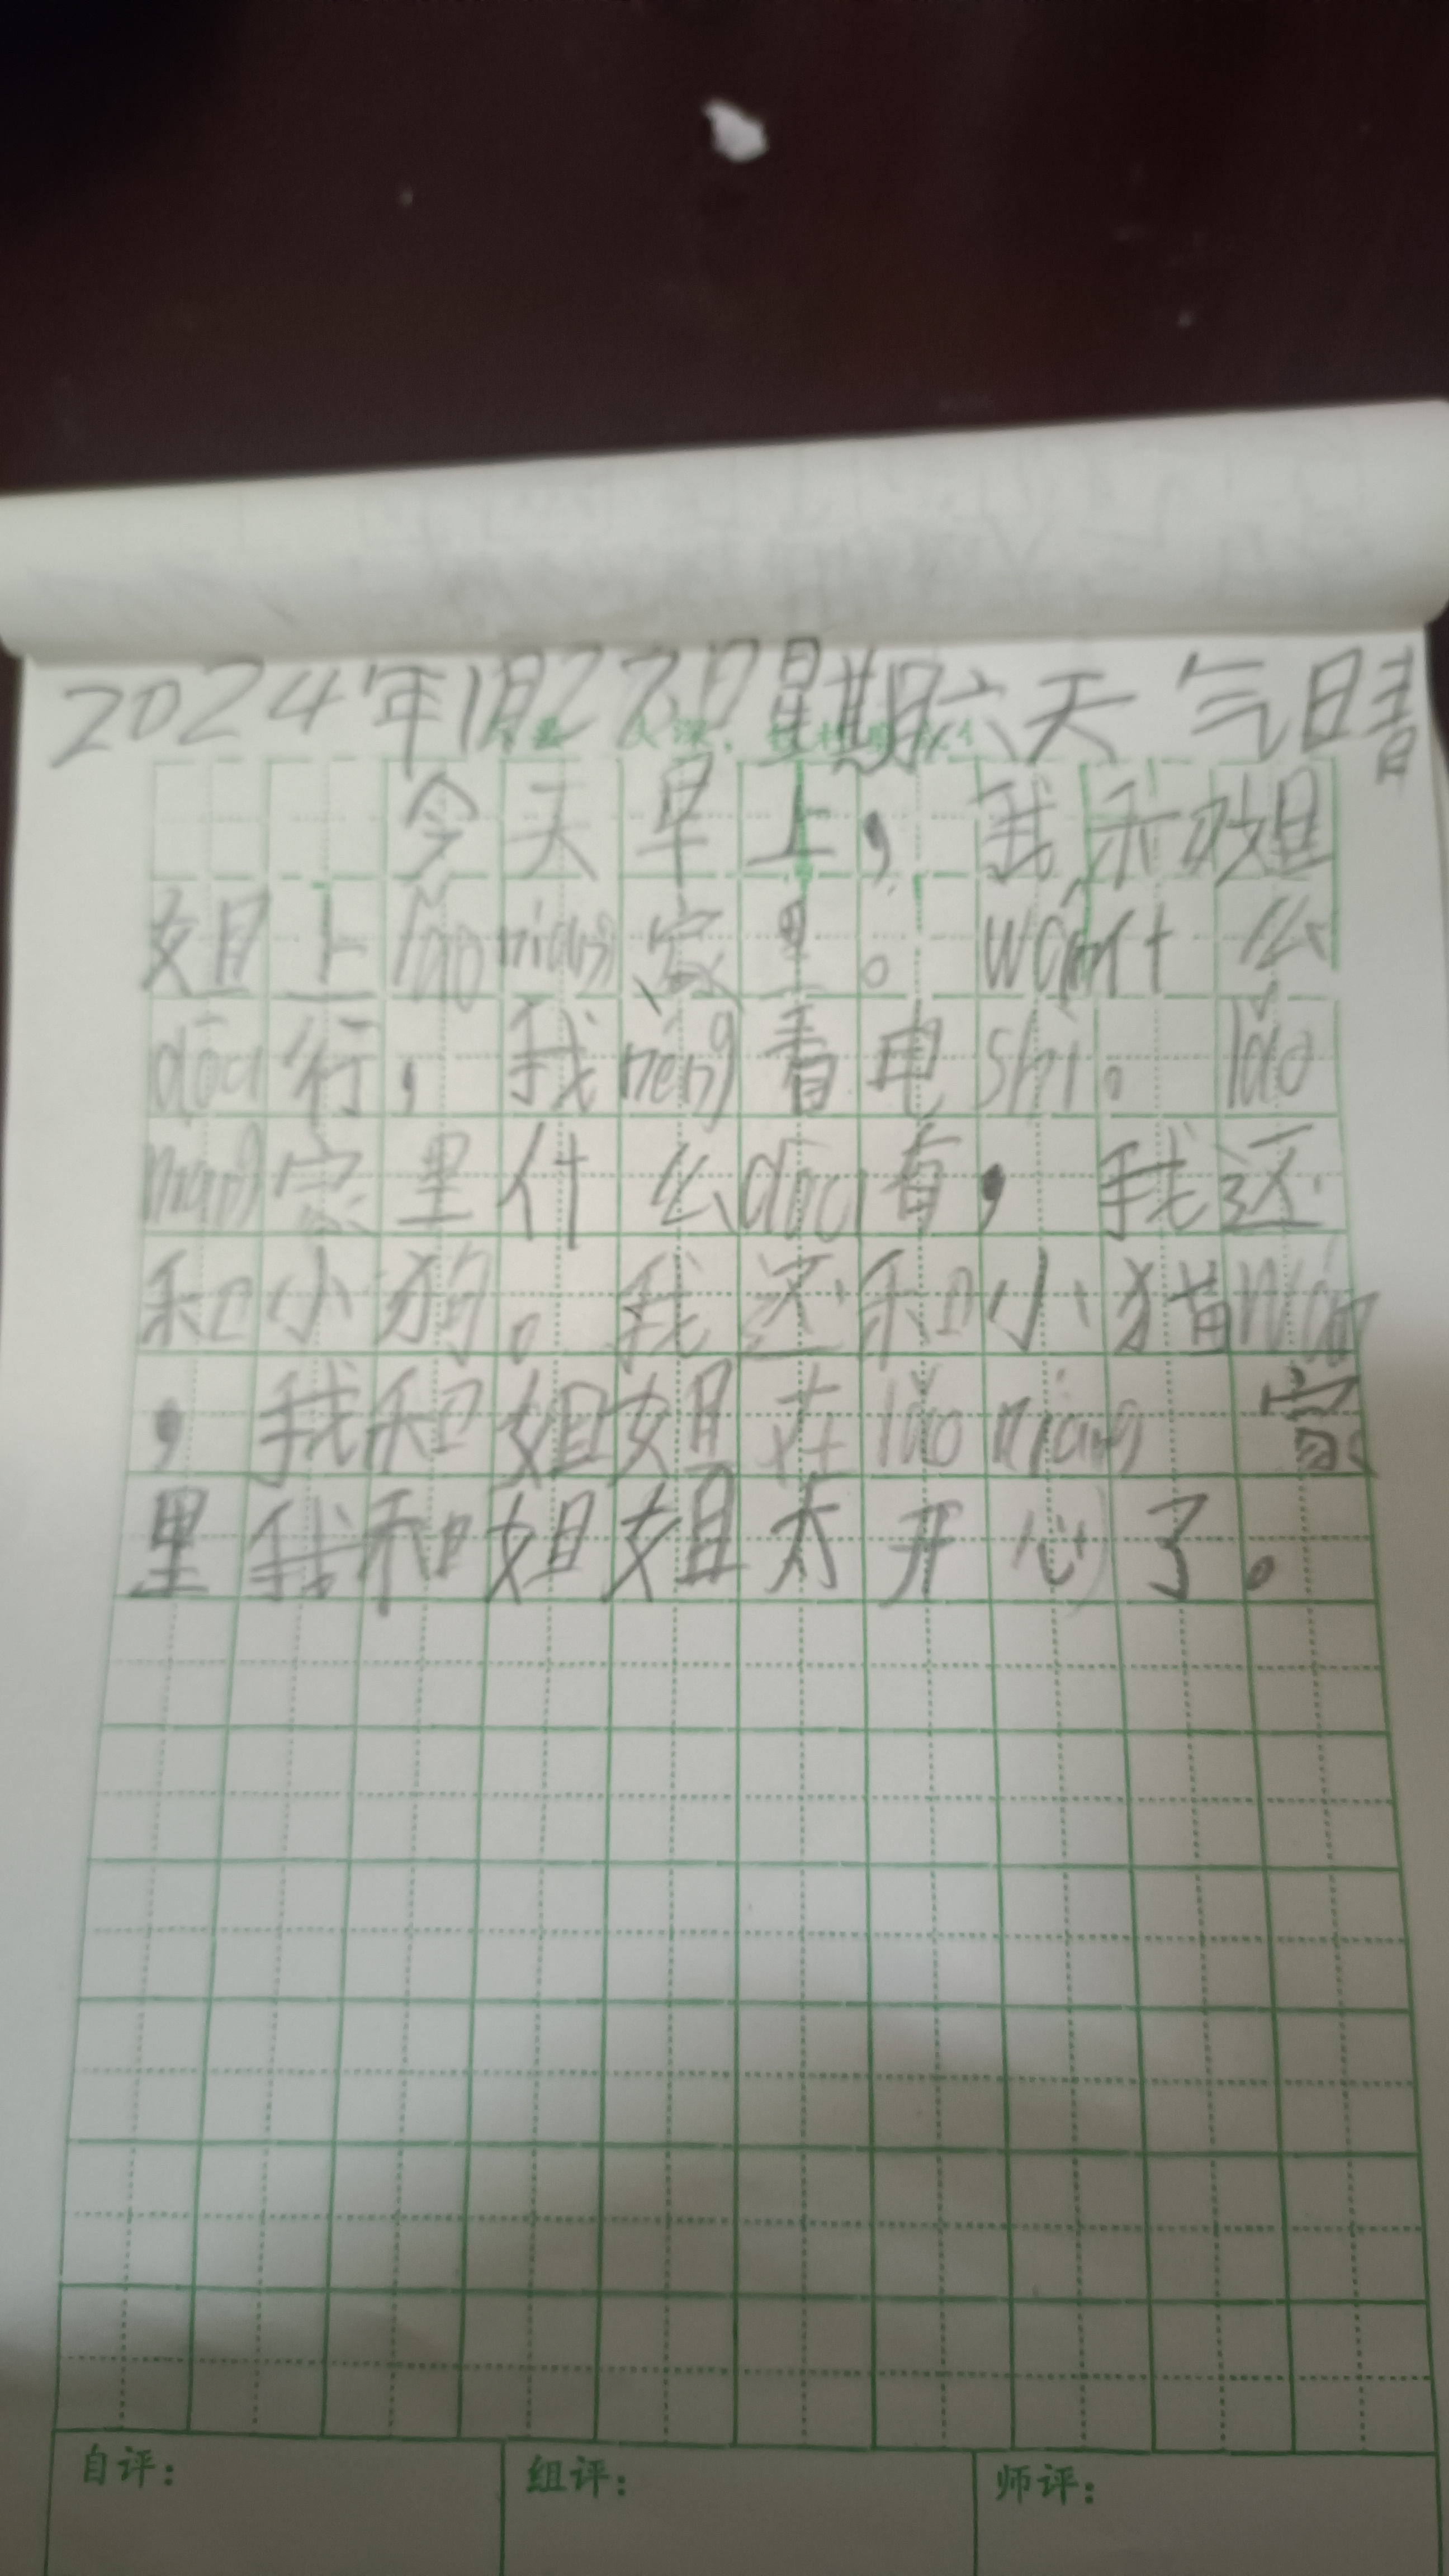 2024年1月27日星期六天气晴
今天早上，我和姐
姐上lǎo niáng家里。wán什么
dōu行，我néng看电shì。lǎo
niáng家里什么dōu有，我还
和小狗。我还和小猫wán
，我和姐姐在lǎo niáng家
里我和姐姐太开心了。
自评： 组评： 师评：